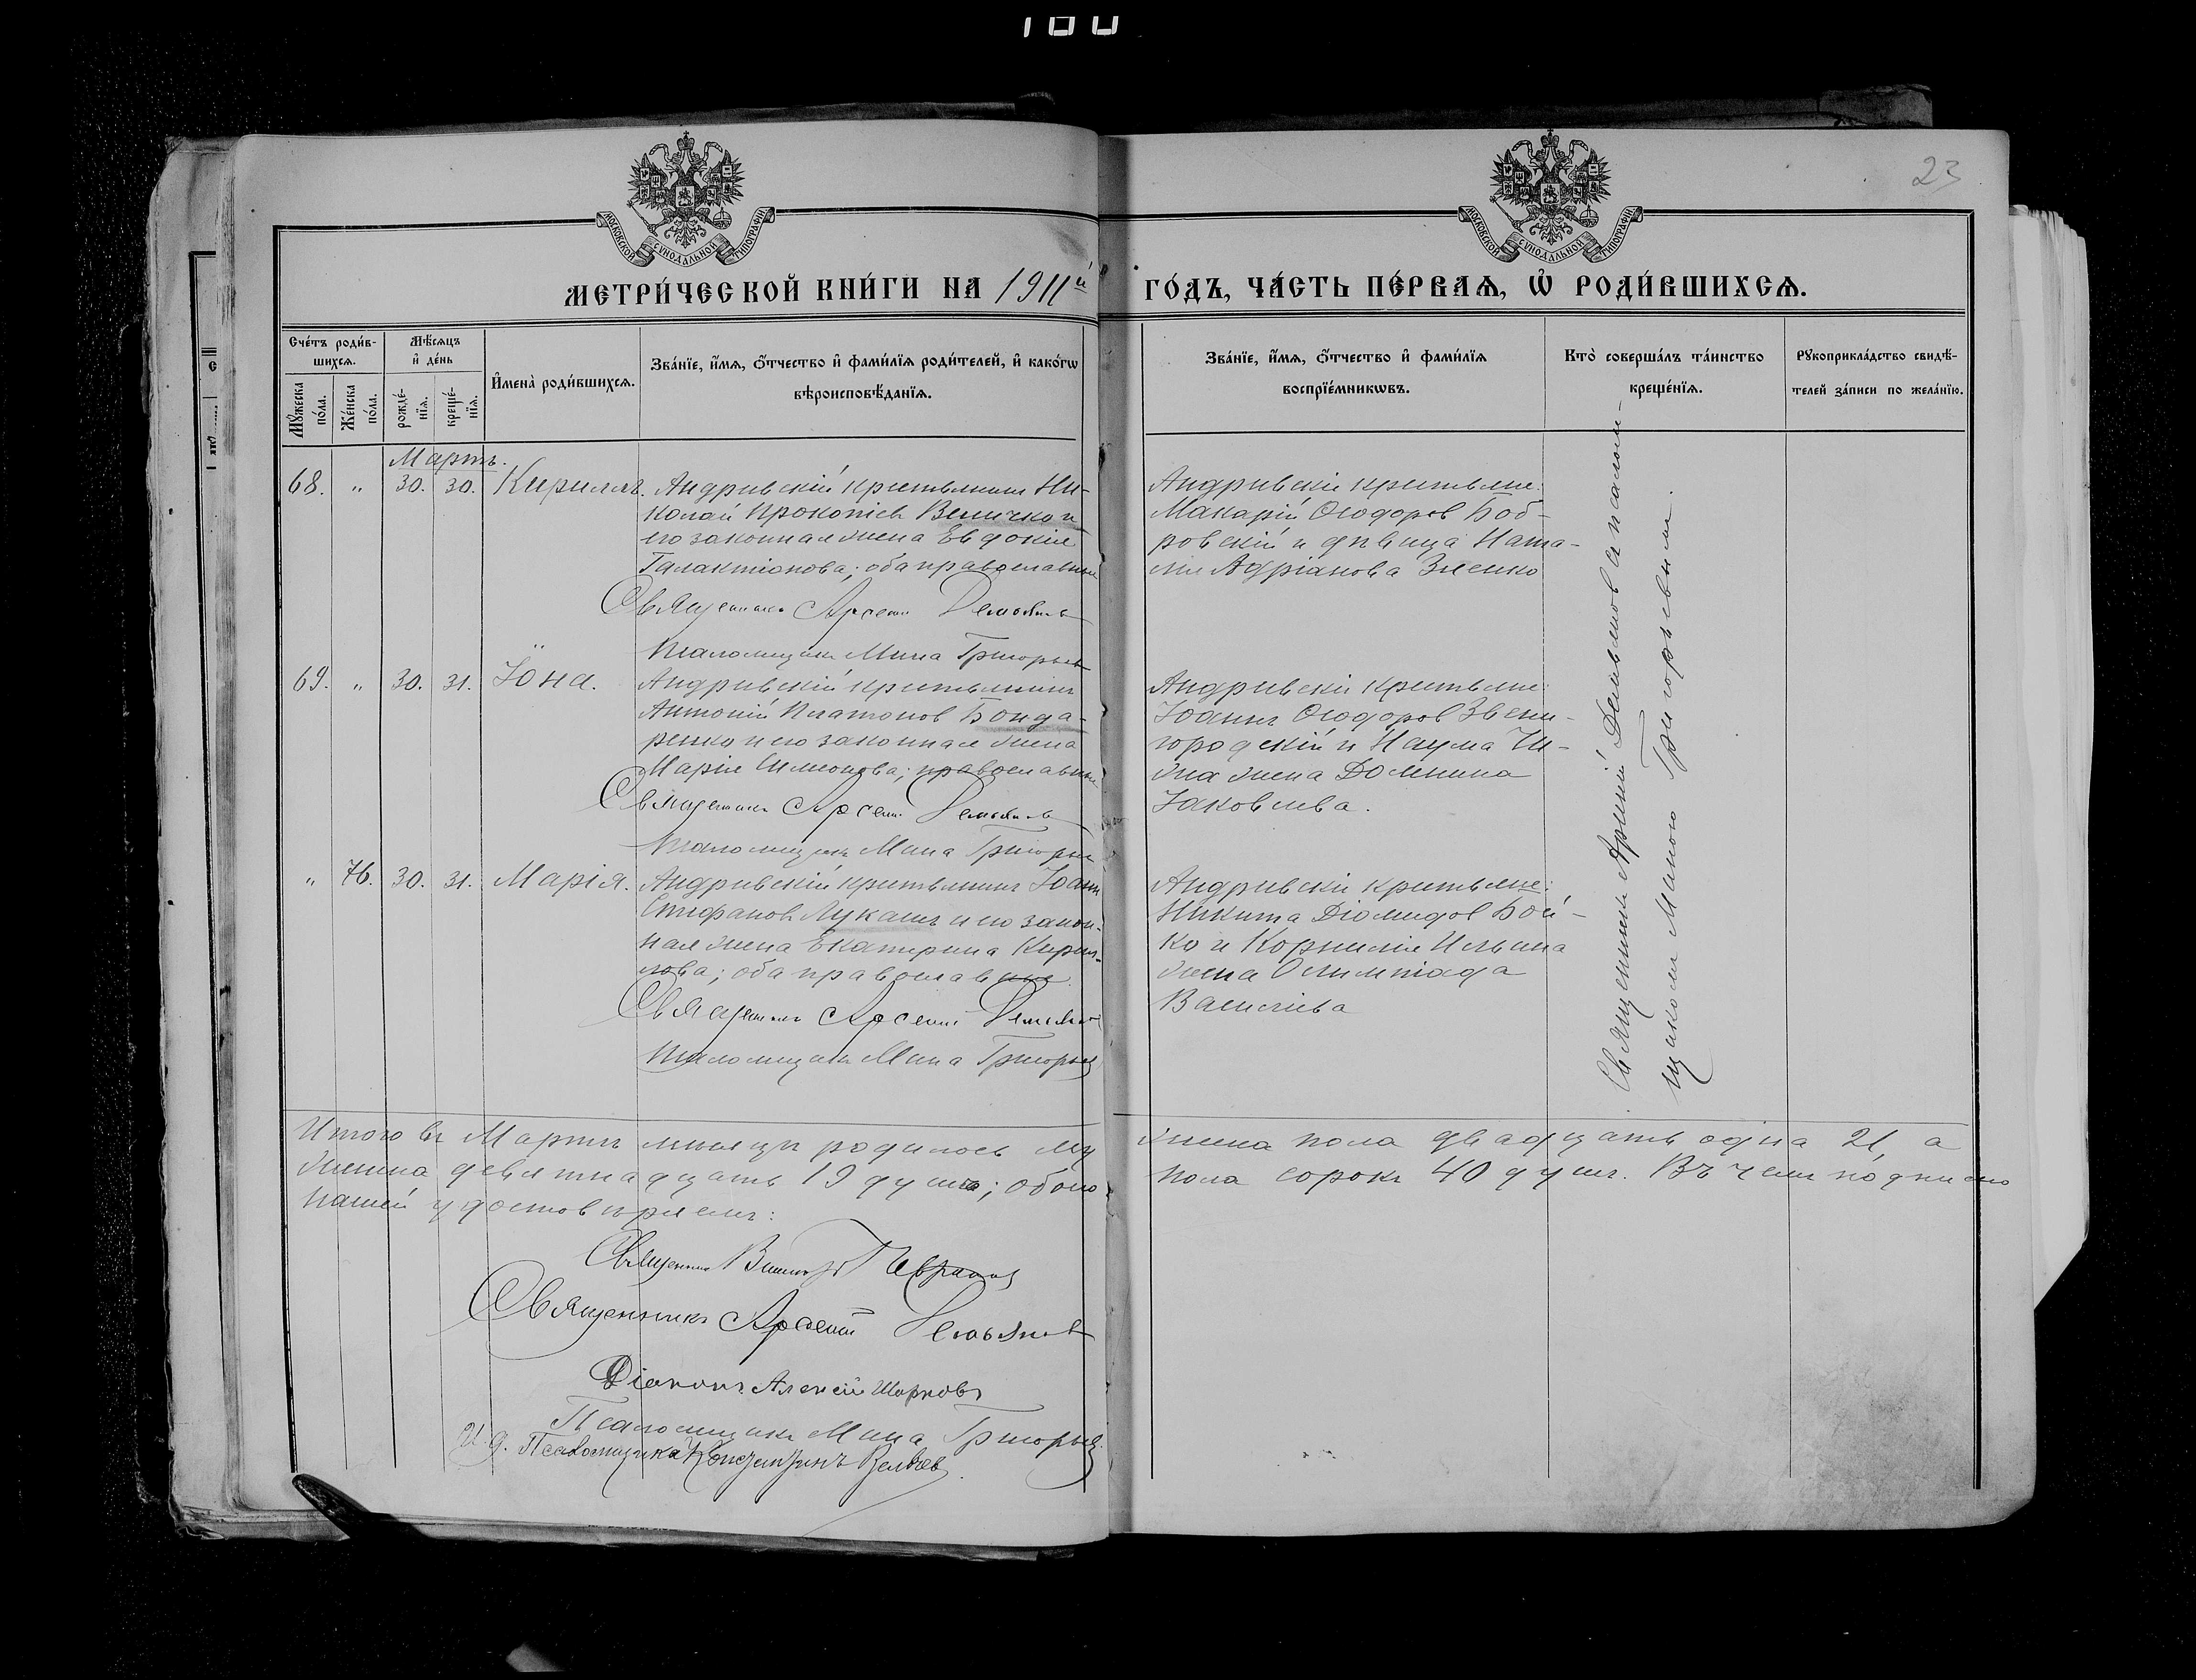 100
23
МОСКОВСКОЙ СѴНОДАЛЬНОЙ ТИПОГРАФІИ
МОСКОВСКОЙ СѴНОДАЛЬНОЙ ТИПОГРАФІИ
МЕТРИ́ЧЕСКОЙ КНИ́ГИ НА 1911й ГО́ДЪ, ЧА́СТЬ ПЕ́РВАѦ, Ѽ РОДИ́ВШИХСѦ.
Сче́тъ роди́в-
шихсѧ.
Мꙋ́жеска по́ла.
Же́нска по́ла.
Мѣ́сѧцъ
и҆ де́нь
рожде́-
нїѧ.
креще́-
нїѧ.
И҆мена̀ роди́вшихсѧ.
Зва́нїе, и҆́мѧ, ѻ҆́тчество и҆ фами́лїѧ роди́телей, и҆ како́гѡ
вѣроисповѣ́данїѧ.
Зва́нїе, и҆́мѧ, ѻ҆́тчество и҆ фами́лїѧ
воспрїе́мникѡвъ.
Кто̀ соверша́лъ та́инство
креще́нїѧ.
Рꙋкоприкла́дство свидѣ́-
телей за́писи по жела́нїю.
Мартъ.
68. " 30. 30. Кириллъ. Андреевскій крестьянинъ Ни-
колай Прокопіев Величко и
его законная жена Евдокія
Галактіонова; оба православные
Священникъ Арсеній Демьянов
Псаломщикъ Мина Григорьев
Андреевскіе крестьяне:
Макарій Ѳеодоров Боб-
ровскій и девица Ната-
лія Адріанова Зленко
69. " 30. 31. Іона. Андреевскій крестьянинъ
Антоній Платонов Бонда-
ренко и его законная жена
Марія Симеонова; православные
Священникъ Арсеній Демьянов
Псаломщикъ Мина Григорьев
Андреевскіе крестьяне:
Іоаннъ Ѳеодоров Звени-
городскій и Наума Чи-
жа жена Домнина
Іаковлева.
" 76. 30. 31. Марія. Андреевскій крестьянинъ Іоаннъ
Стефанов Лукашъ и его закон-
ная жена Екатерина Кирил-
лова; оба православные.
Священникъ Арсеній Демьянов
Псаломщикъ Мина Григорьев
Андреевскіе крестьяне:
Никита Діомидов Бой-
ко и Корнилія Ильина
жена Олимпіада
Васильева
Священник Арсений Демьянов с псалом-
щиком Миною Григорьевым.
Итого въ Мартѣ месяцѣ родилось му
жеска пола двадцать одна 21, а
женска девятнадцать 19 душъ; обоего
пола сорокъ 40 душъ. Въ чемъ подписью
нашей удостовѣряемъ:
Священникъ
Священникъ Арсеній Демьянов
Діаконъ Алексій Шорковъ
Псаломщикъ Мина Григорьев.
И. д. Псаломщика Константинъ